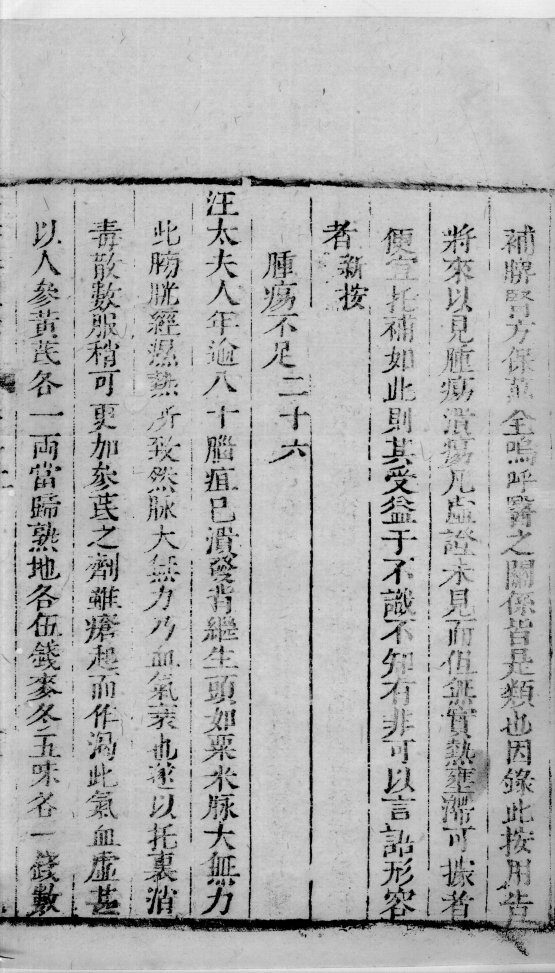 補脾腎方保萬全嗚呼醫之關係皆是類也因錄此按用告
將來以見腫瘍潰瘍凡虛證未見而但無實熱壅滯可據者
便宜托補如此則其受益于不識不知有非可以言語形容
者新按
腫瘍不足二十六
汪太夫人年逾八十腦疽已潰發背繼生頭如粟米脉大無力
此膀胱經濕熱所致然脉大無力乃血氣衰也遂以托裏消
毒散數服稍可更加參芪之劑雖瘡起而作渴此氣血虛甚
以人參黃芪各一兩當歸熟地各伍錢麥冬五味各一錢數